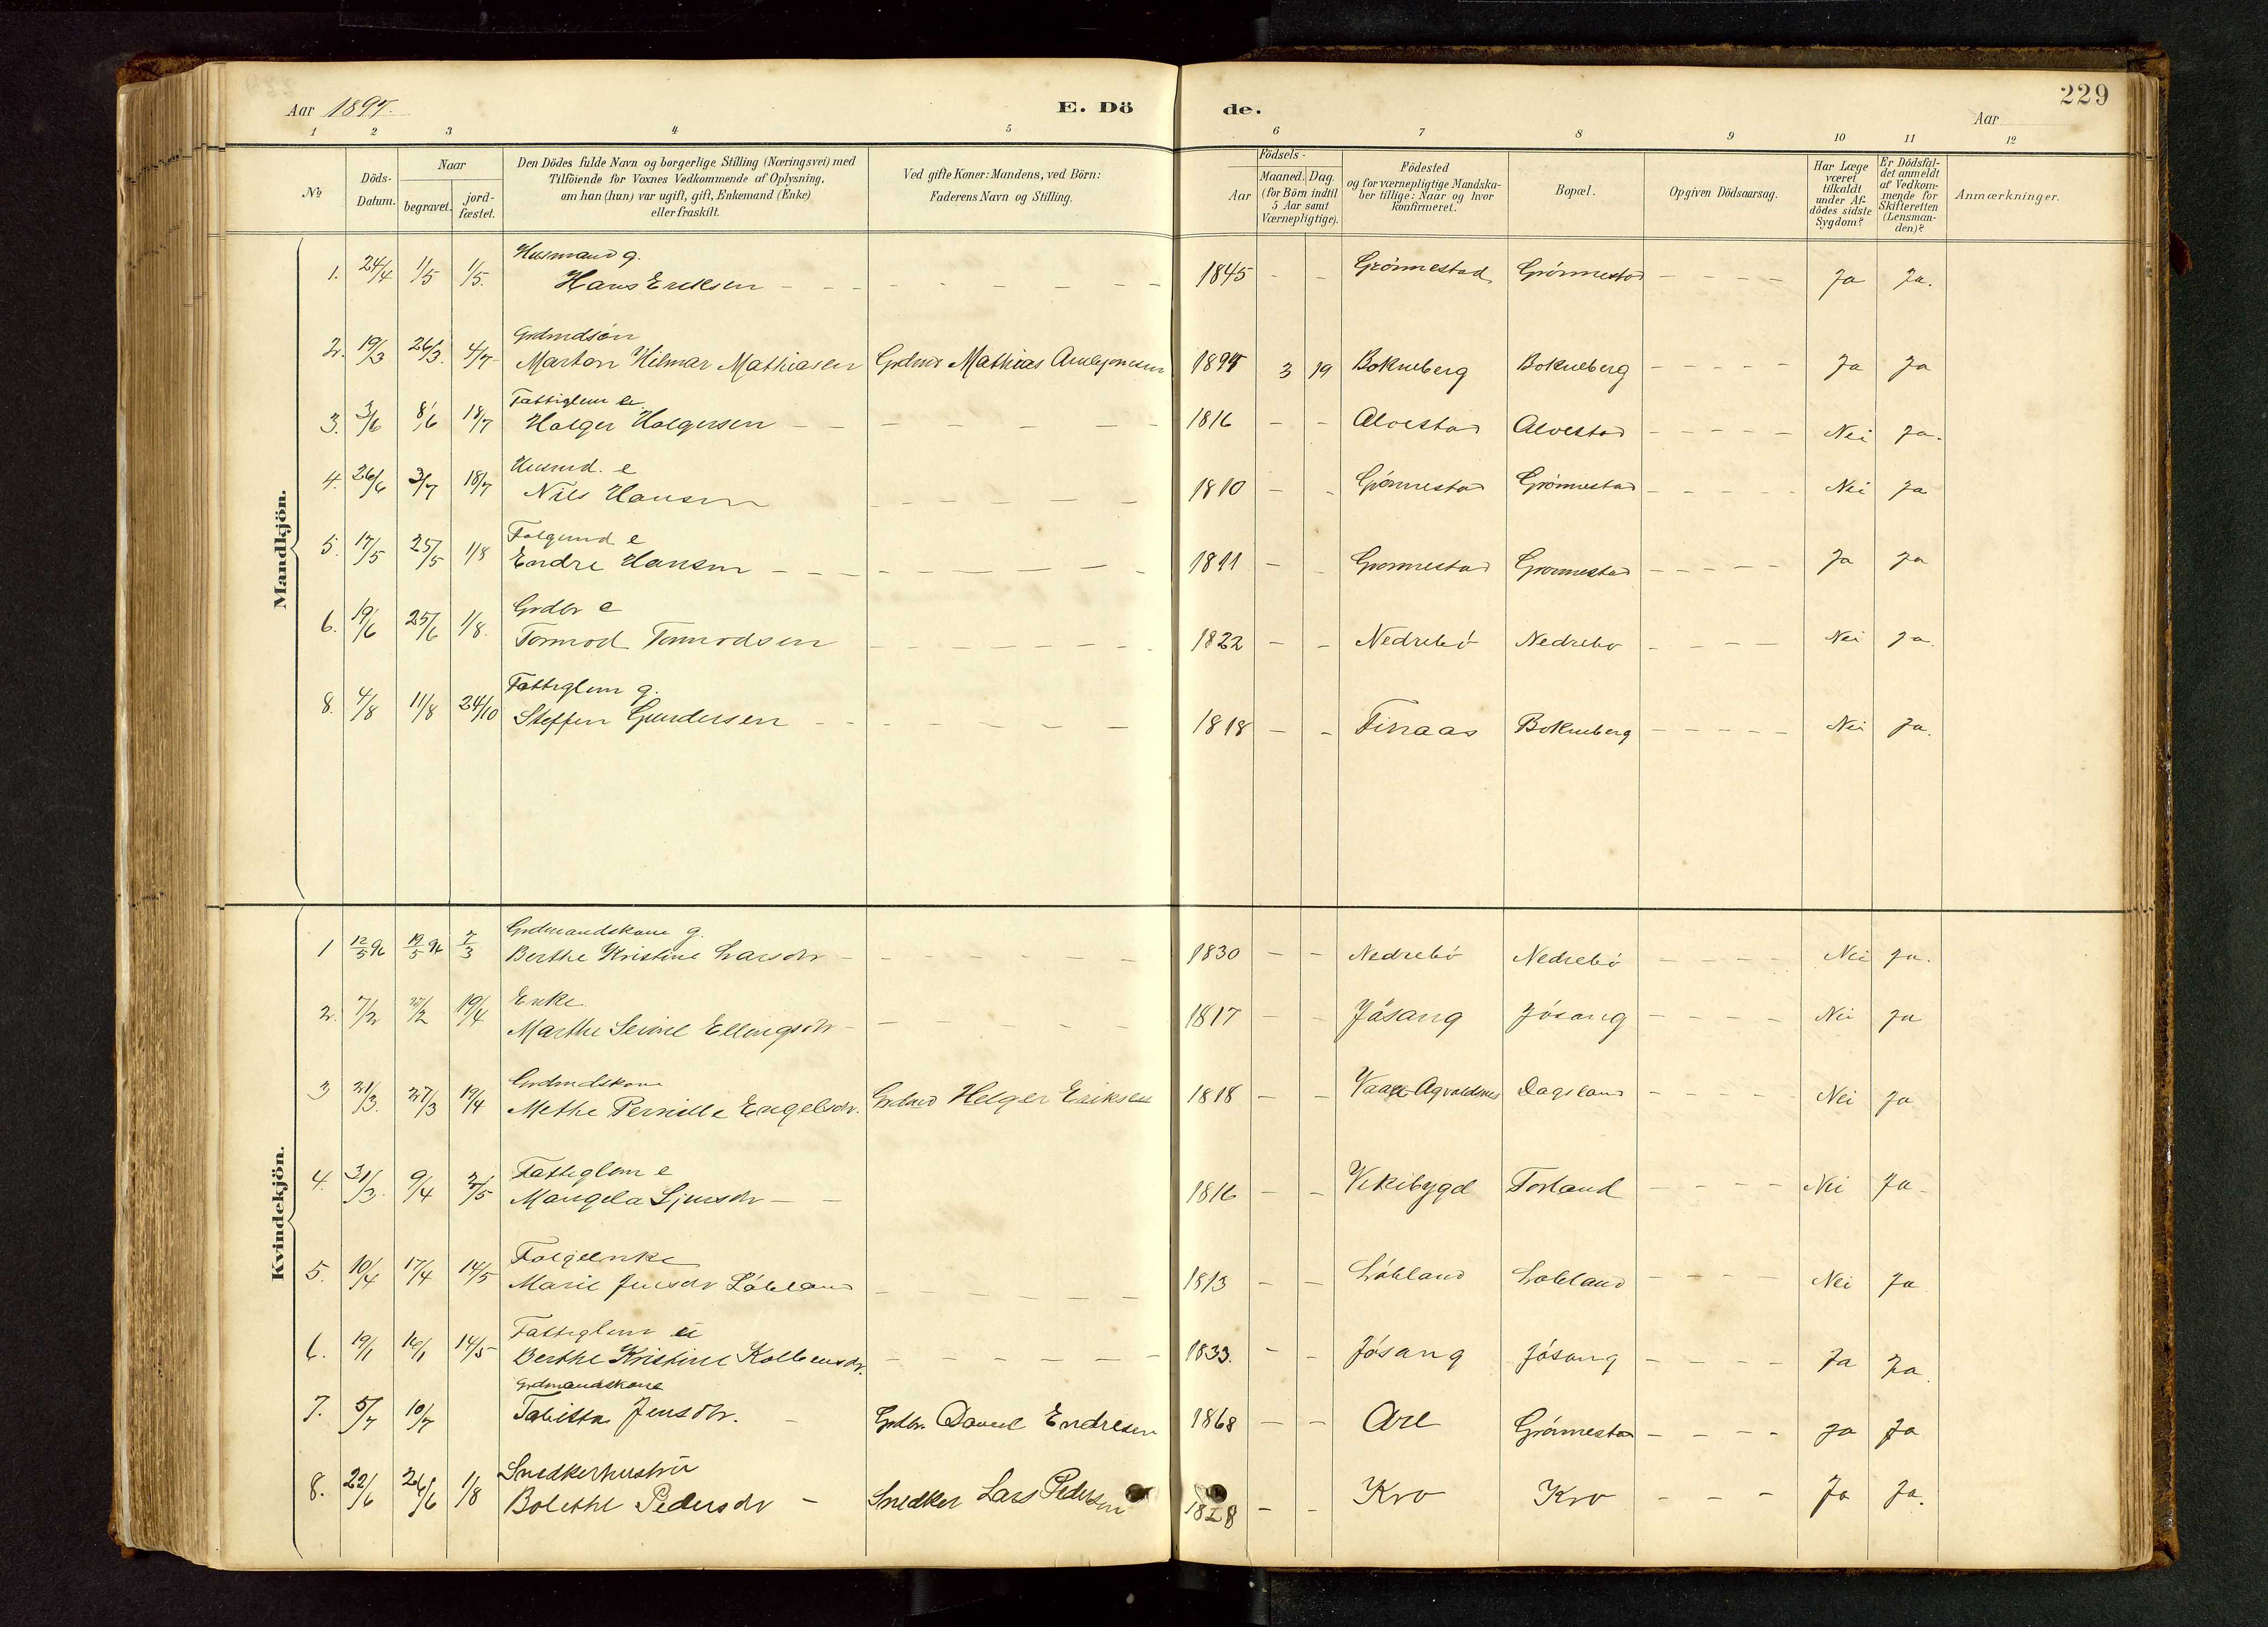 229
Aar 1897.
E. Dö
de.
Aar
1 2 3 4 5 6 7 8 9 10 11 12
No
Döds-
Datum.
Naar
begravet.
jord-
fæstet.
Den Dödes fulde Navn og borgerlige Stilling (Næringsvei) med
Tilföiende for Voxnes Vedkommende af Oplysning,
om han (hun) var ugift, gift, Enkemand (Enke)
eller fraskilt.
Ved gifte Koner: Mandens, ved Börn:
Faderens Navn og Stilling.
Födsels-
Aar
Maaned. Dag.
(for Börn indtil
5 Aar samt
Værnepligtige).
Födested
og for værnepligtige Mandska-
ber tillige: Naar og hvor
konfirmeret.
Bopæl.
Opgiven Dödsaarsag.
Har Læge
været
tilkaldt
under Af-
dödes sidste
Sygdom?
Er Dödsfal-
det anmeldt
af Vedkom-
mende for
Skifteretten
(Lensman-
den)?
Anmærkninger.
Mandkjön.
Husmand g.
1. 24/4 1/5 1/5. Hans Eriksen - - - 1845 - - Grönnestad Grönnestad - - - - Ja Ja.
Grdmdsön
2. 19/3 26/3. 4/7 Marton Hilmar Mathiasen Grdmd Mathias 1894 3 19 Bokneberg Bokneberg - - - - Ja Ja
Fattiglem e
3. 3/6 8/6 18/7 Holger Holgersen - - - 1816 - - Alvestad Alvestad - - - - Nei Ja.
Husmd. e
4. 26/6 3/7 18/7 Nils Hansen - - - 1810 - - Grönnestad Grönnestad - - - - Nei Ja
Folgemd e
5. 17/5 25/5 1/8 Endre Hansen - - - 1811 - - Gronnestad Gronnestad - - - - Ja Ja
Grdbr e
6. 19/6 25/6 1/8. Tormod Tormodsen - - - 1822 - - Nedrebö Nedrebo - - - - Nei Ja.
Fattiglem g.
8. 4/8 11/8 24/10 Steffen Gundersen - - - 1818 - - Finaas Bokneberg - - - - Nei Ja.
Kvindekjön.
Grdmandskone g.
1 12/5 96 19/5 96 7/3 Berthe Kristine Larsdr - - - 1830 - - Nedrebö Nedrebö - - - - Nei Ja.
Enke
2. 7/2 19/4 Marthe Serine Ellingsdr - - - 1817 - - Jösang Jösang - - - - Nei Ja
Grdmdskone
3 21/3. 27/3 19/4 Methe Pernille Engelsdr. Grdmd Helger Eriksen 1818 - - Vaage Agvaldnes Dagsland - - - - Nei Ja
Fattiglem e
4. 31/3. 9/4 2/5 Mangela Sjursdr - - 1816 - - Vikebygd Forland - - - - Nei Ja
Folgeenke
5. 10/4 17/4 14/5 Marie Jensdr Lökland - - - 1813 - - Lökland Lokland - - - - Nei Ja
Fattiglem
6. 19/1 14/5 Berthe Kristine Kolbensdr. - - - 1833. - - Jösang Jösang - - - - Ja Ja.
Grdmandskone
7. 5/7 10/7 Tabitta Jensdtr. - Grdbr. Daniel Endresen 1868 - - Are Grönnestad - - - - Ja Ja
Snedkerhustru
8. 22/6 26/6 1/8 Bolethe Pedersdr - Snedker Lars Pedersen 1828 - - Kro Kro - - - Ja Ja.